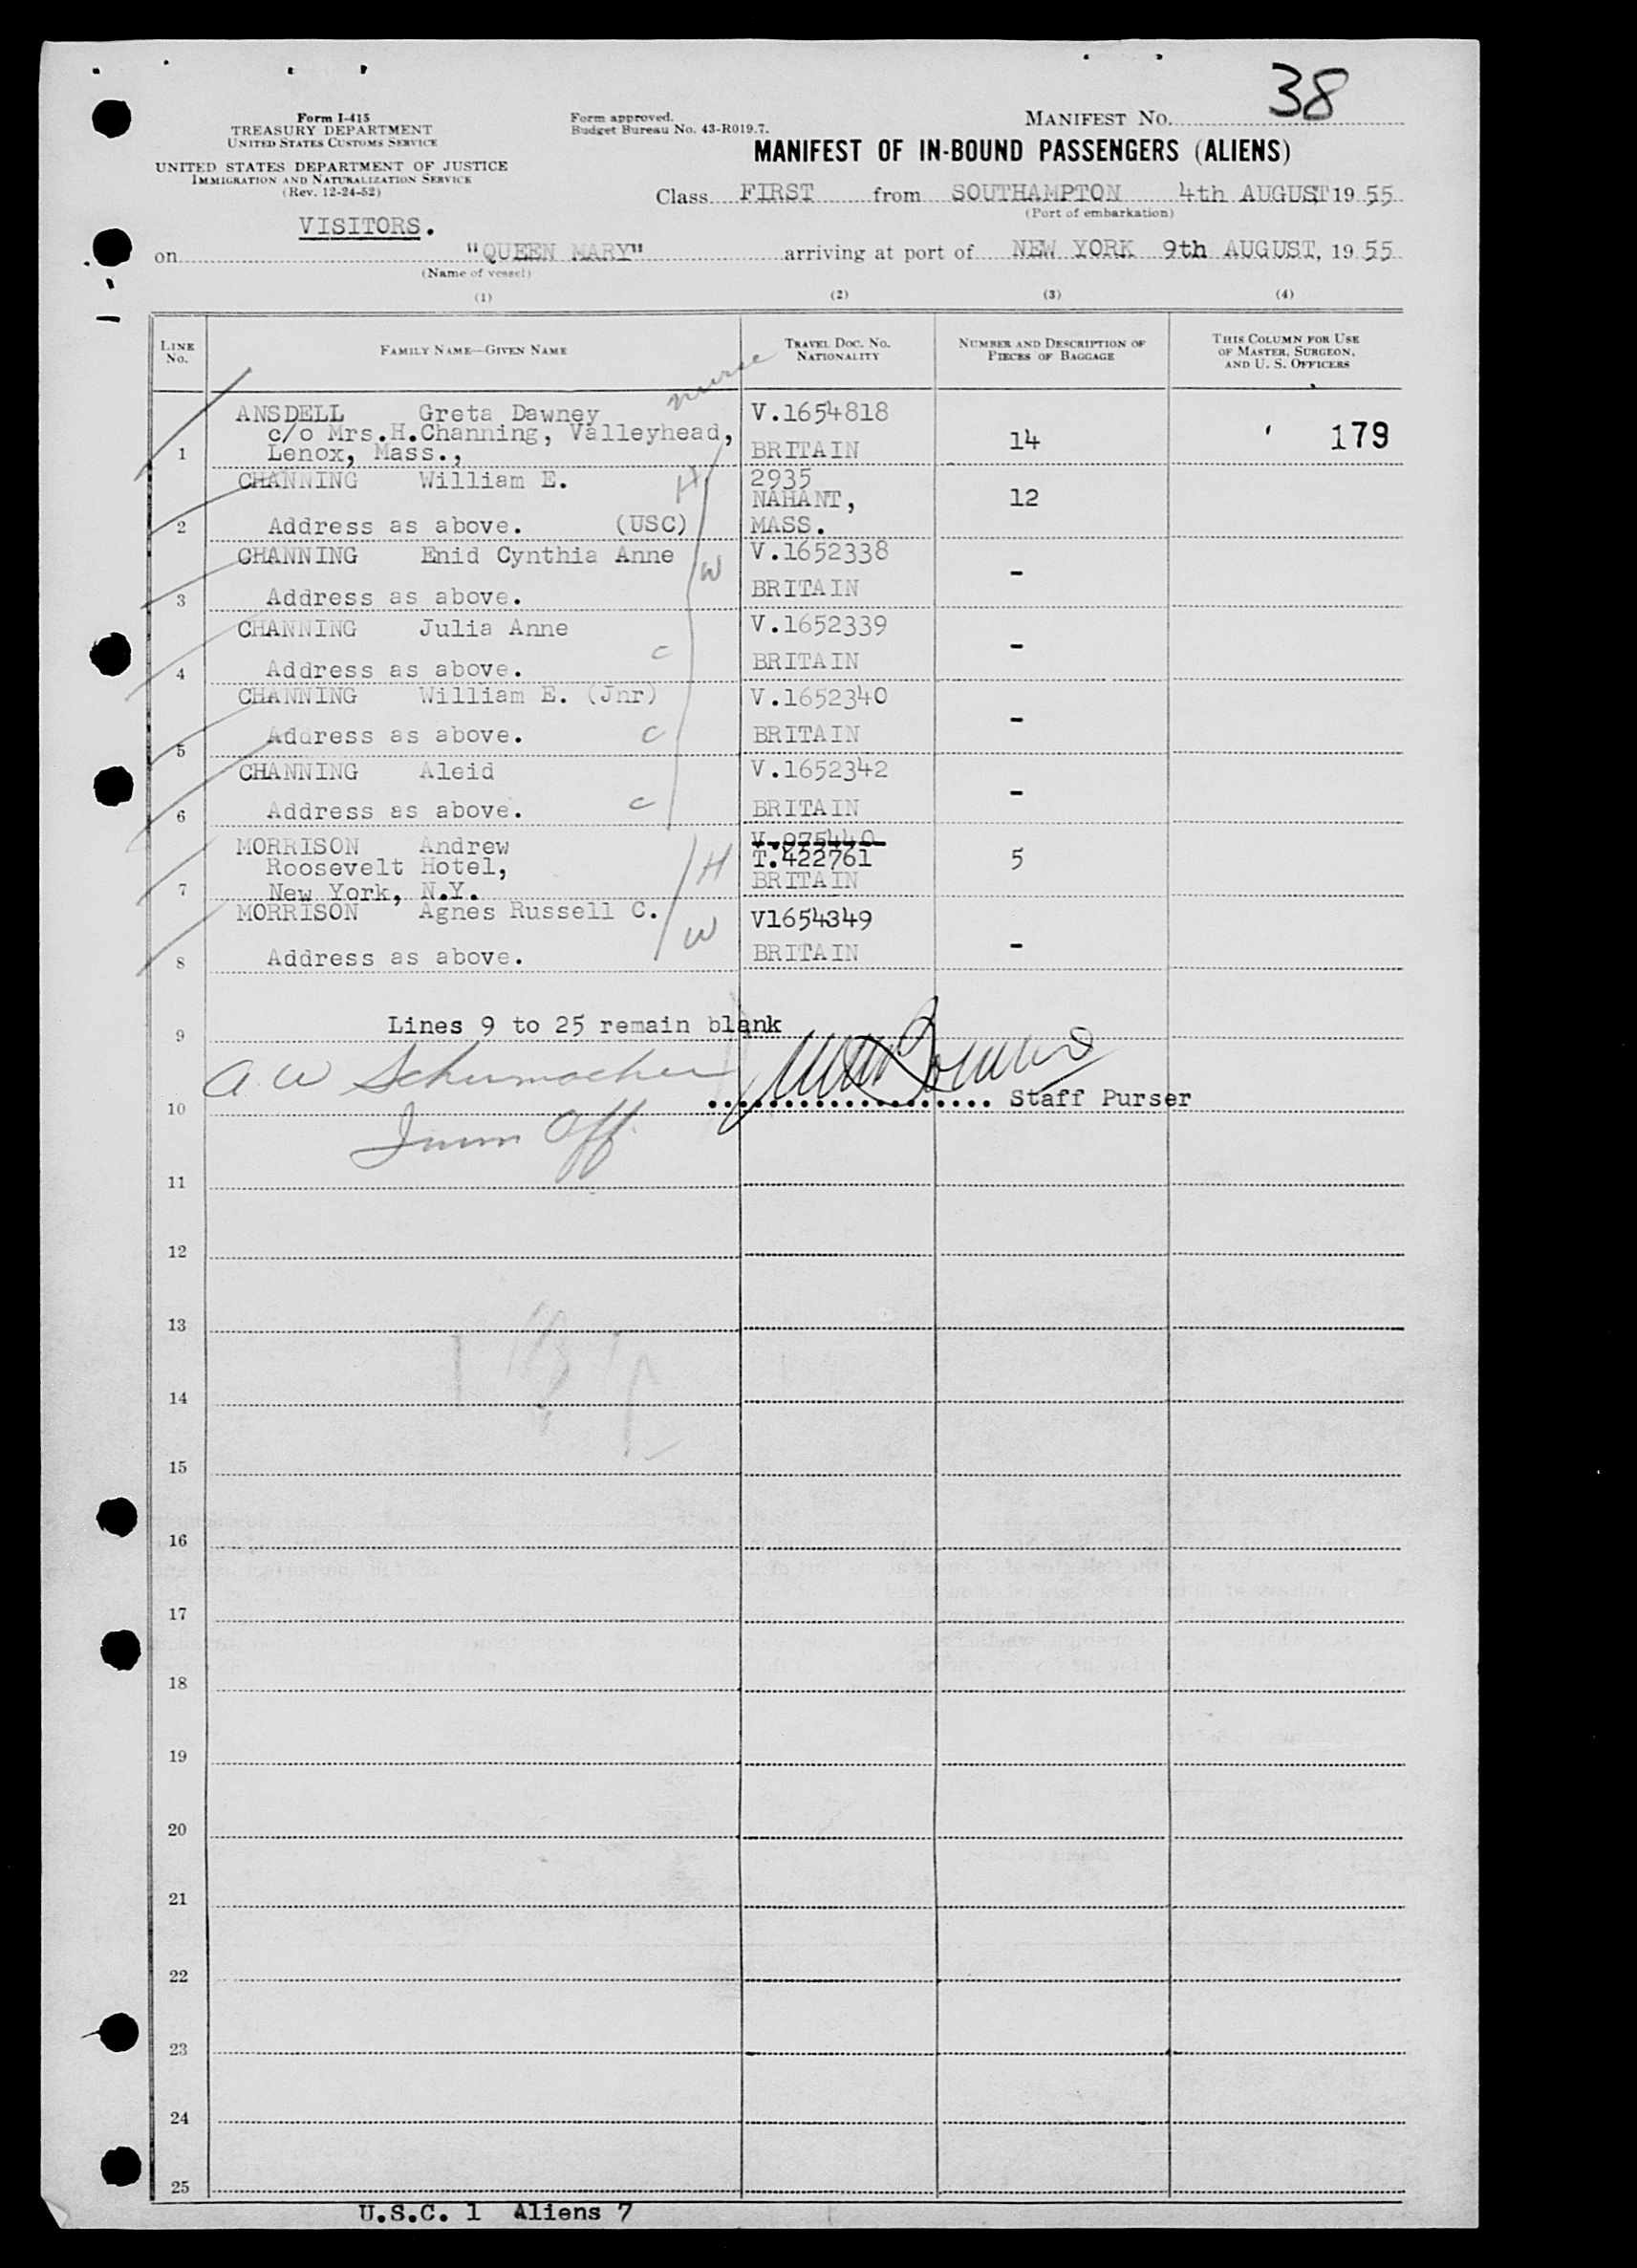 38
Form I-415
TREASURY DEPARTMENT
UNITED STATES CUSTOMS SERVICE
UNITED STATES DEPARTMENT OF JUSTICE
IMMIGRATION AND NATURALIZATION SERVICE
(Rev. 12-24-52)
Form approved.
Budget Bureau No. 43-R019.7.
MANIFEST NO.
MANIFEST OF IN-BOUND PASSENGERS (ALIENS)
Class FIRST from SOUTHAMPTON 4th AUGUST 19 55
(Port of embarkation)
VISITORS.
on "QUEEN MARY" arriving at port of NEW YORK 9th AUGUST, 19 55
(Name of vessel)
(1) (2) (3) (4)
LINE NO.
FAMILY NAME—GIVEN NAME
TRAVEL DOC. NO. NATIONALITY
NUMBER AND DESCRIPTION OF PIECES OF BAGGAGE
THIS COLUMN FOR USE OF MASTER, SURGEON, AND U. S. OFFICERS
nurse
ANSDELL Greta Dawney V.1654818
c/o Mrs.H.Channing, Valleyhead,
1 Lenox, Mass., BRITAIN 14 179
CHANNING William E. H 2935
NAHANT, 12
2 Address as above. (USC) MASS.
CHANNING Enid Cynthia Anne W V.1652338
3 Address as above. BRITAIN -
CHANNING Julia Anne V.1652339
4 Address as above. C BRITAIN -
CHANNING William E. (Jnr) V.1652340
5 Address as above. C BRITAIN -
CHANNING Aleid V.1652342
6 Address as above. C BRITAIN -
MORRISON Andrew V.075440
Roosevelt Hotel, H T.422761 5
7 New York, N.Y. BRITAIN
MORRISON Agnes Russell C. W V1654349
8 Address as above. BRITAIN -
Lines 9 to 25 remain blank
9
A W Schumacher
10 Staff Purser
Imm Off.
11
12
13
14
15
16
17
18
19
20
21
22
23
24
25
U.S.C. 1 Aliens 7